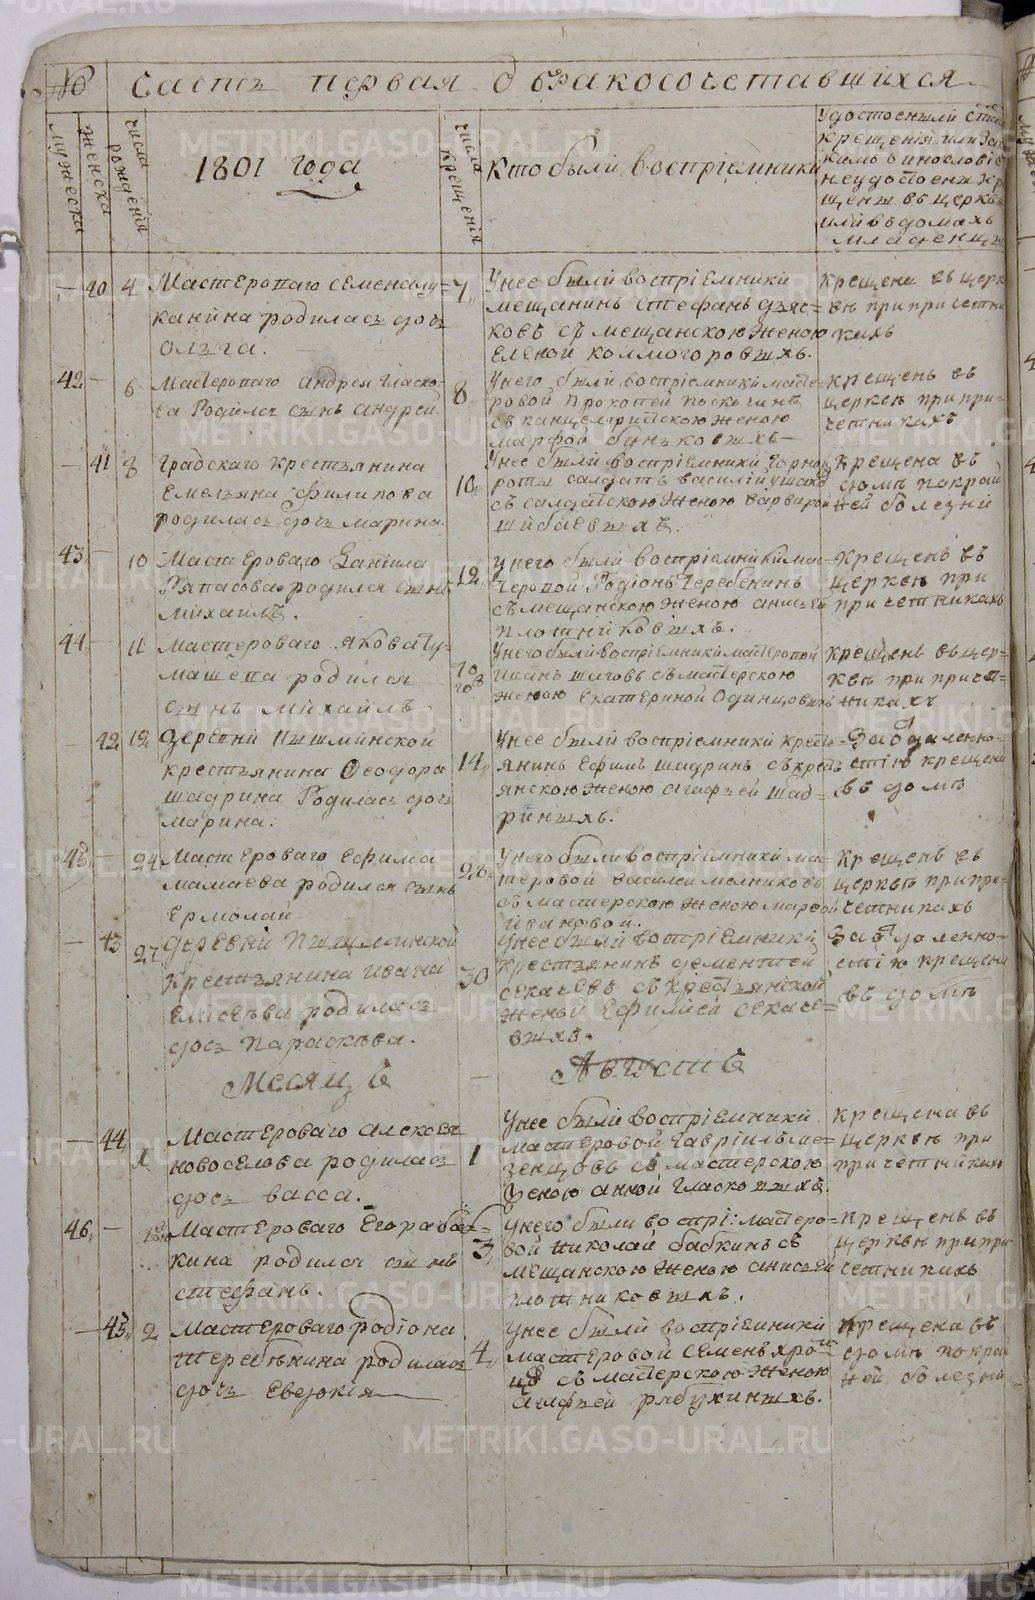 № Часть первая о бракосочетавшихся
мужеска
женска
числа рожденiя
1801 года
числа крещенiя
Кто были воспрiемники
Удостоены ли
крещенiя или за
какимъ
неудостоены кр
щены въ церкви
или въ домахъ
младенцы
40 4 Мастероваго Семена Лу=
канина родилась дочь
Олга.
7 У нее были воспрiемники
мещанинъ Стефанъ Дьяч=
ковъ съ мещанскою женою
Еленой Колмогоровыхъ.
крещена въ церк
ви при причетни
кахъ
42 6 Мастероваго Андрея Гласко=
ва родился сынъ Андрей
8 У него были воспрiемники масте=
ровой Прокопей Поскочинъ
съ канцелярискою женою
Марфой
крещенъ въ
церкви при при=
четникахъ
41 8 Градскаго крестьянина
Емельяна Филипова
родилась дочь Марина
10 У нее были воспрiемники Горной
роты салдатъ Василiй Ушаков
съ салдатскою женою Варварой
Шибаевыхъ.
крещена въ
доме по край
ней болезни
43 10 Мастероваго Данiила
родился сынъ
Михаилъ.
12 У него были воспрiемники мас=
теровой Родiонъ Теребенинъ
съ мещанскою женою Анисьей
Плотниковыхъ.
крещенъ въ
церкви при
причетникахъ
44 11 Мастероваго Якова Ту=
машева родился
сынъ Михаилъ
У него были воспрiемники мастеровой
Иванъ Шаговъ съ мастерскою
женою Екатериной Одинцовыхъ
крещенъ въ цер=
кви при причет=
никахъ
42 12 Деревни Пышминской
крестьянина Феодора
Шадрина родилась дочь
Марина.
14 У нее были воспрiемники кресть=
янинъ Ефимъ Шадринъ съ кресть
янскою женою Агафьей Шад=
риныхъ.
За отдаленно=
стiю крещена
въ доме
45 24 Мастероваго Ефима
Мамаева родился сынъ
Ермолай
26 У него были воспрiемники мас=
теровой Василей Мелниковъ
съ мастерскою женою Марфой
Ивановой.
крещенъ въ
церкви при при=
четникахъ
43 27 Деревни Пышминской
крестьянина Ивана
Елисеева родилась
дочь Параскева.
30 У нее были воспрiемники
крестьянинъ Дементей
Секачевъ съ крестьянской
женой Ефимией Секаче=
выхъ.
За отдаленно=
стiю крещена
въ доме
Месяцъ Августъ
44 1 Мастероваго Алексея
Новоселова родилась
дочь Васса.
1 У нее были воспрiемники
мастеровой Гаврiилъ Ме=
зенцовъ съ мастерскою
женою Анной Гласковыхъ.
крещена въ
церкви при
причетникахъ
46 Мастероваго Егора Баб=
кина родился сынъ
Стефанъ.
3 У него были воспрi: мастеро=
вой Николай Бабкинъ съ
мещанскою женою Анисьей
Плотниковыхъ.
крещенъ въ
церкви при при
четникахъ
45 2 Мастероваго Родiона
Теребенина родилась
дочь Евдокiя
4 У нее были воспрiемники
мастеровой Семенъ
съ мастерскою женою
Агафьей Рябухиныхъ.
крещена въ
доме по край
ней болезни
METRIKI.GASO-URAL.RU